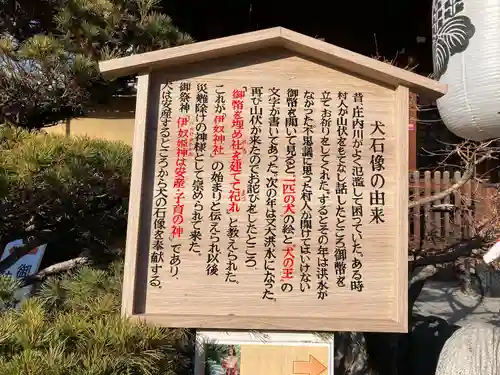 犬石像の由来
昔、庄内川がよく氾濫して困っていた。ある時
村人が山伏をもてなし話したところ御幣を
立てお祈りをしてくれた。するとその年は洪水が
なかった。不思議に思った村人が開けてはいけない
御幣を開いて見ると、一匹の犬の絵と「犬の王」の
文字が書いてあった。次の年は又大洪水になった。
再び山伏が来たので詫びをしたところ、
「御幣を埋め社を建てて祀れ」と教えられた。
これが、伊奴神社の始まりと伝えられ以後
災難除けの神様として崇められて来た。
御祭神「伊奴姫神は安産・子育の神」であり、
犬は安産するところから犬の石像を奉献する。